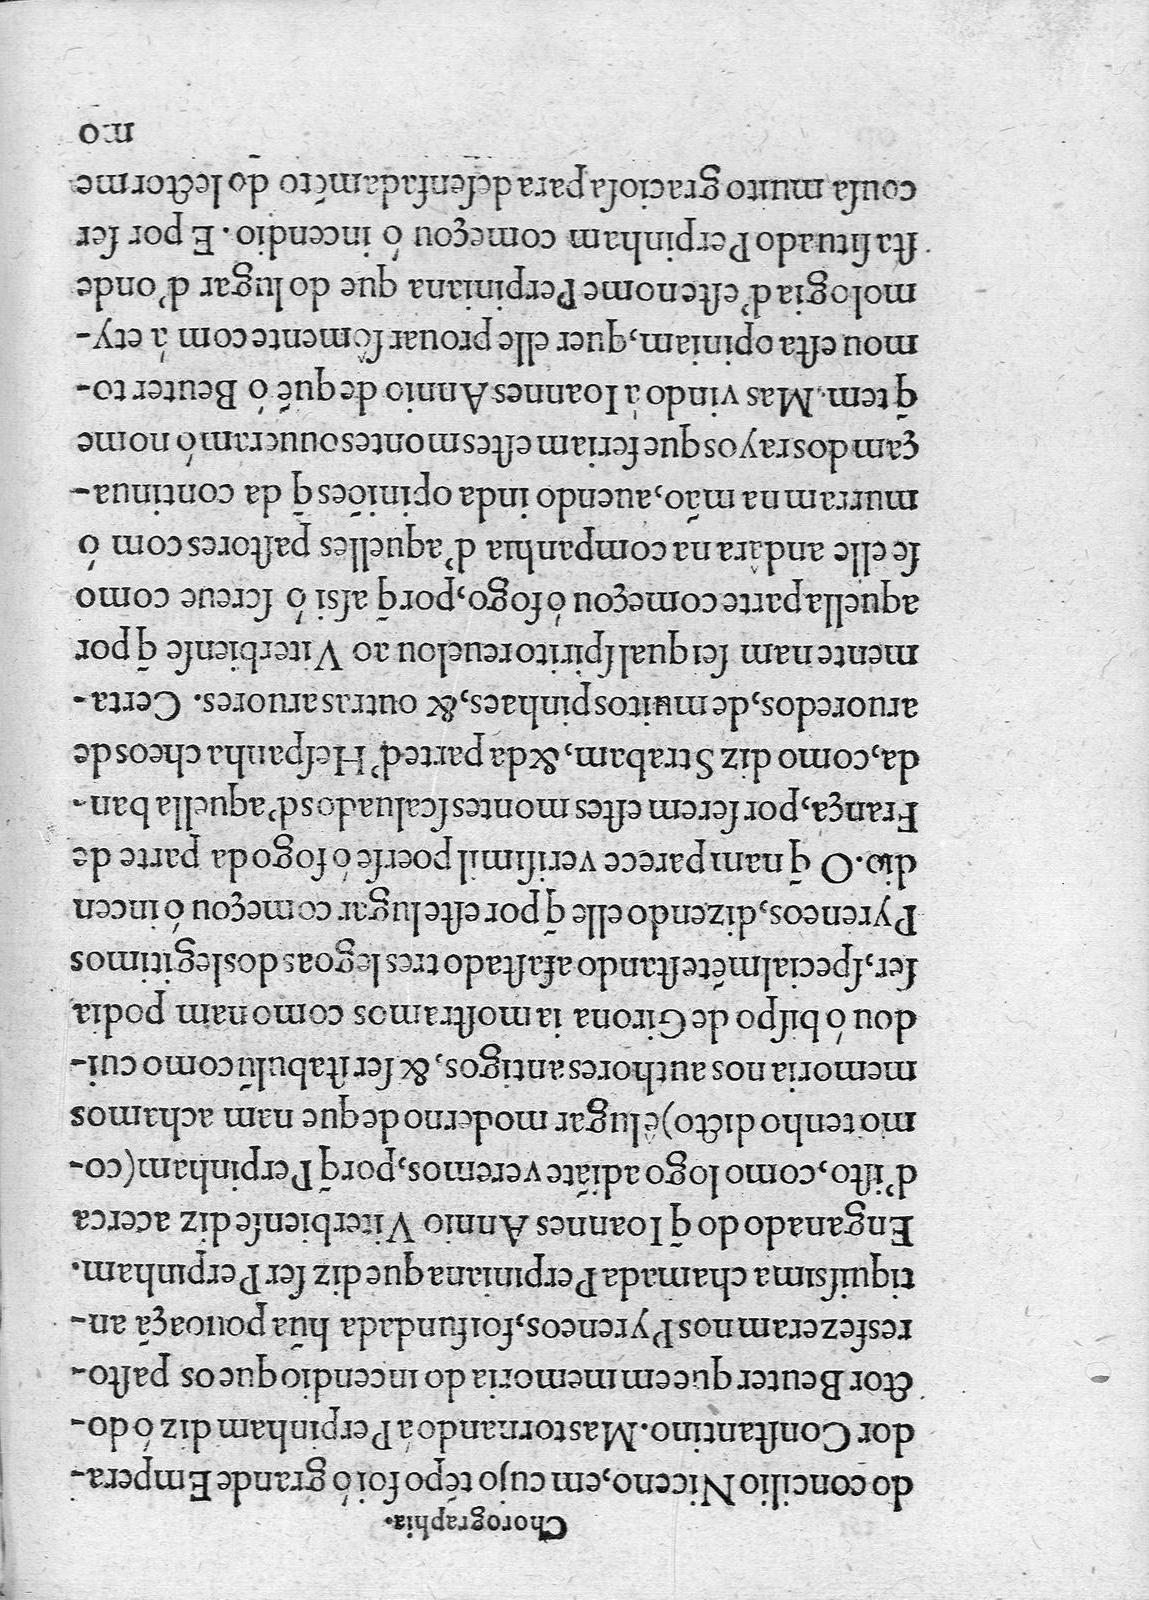 Chorographia.
do concilio Niceno, em cujo tẽpo foi ó grande Empera-
dor Conſtantino. Mas tornando á Perpinham diz ó do-
ctor Beuter que em memoria do incendio que os paſto-
res fezeram nos Pyreneos, foi fundada hũa pouoaçã an-
tiquiſsima chamada Perpiniana que diz ſer Perpinham.
Enganado do q̃ Ioannes Annio Viterbienſe diz acerca
d'iſto, como logo adiãte veremos, porq̃ Perpinham (co-
mo tenho dicto) ê lugar moderno de que nam achamos
memoria nos authores antigos, & ſer iſtabulũ como cui-
dou ó biſpo de Girona ia moſtramos como nam podia
ſer, ſpecialmẽte ſtando afaſtado tres legoas dos legitimos
Pyreneos, dizendo elle q̃ por eſte lugar começou ó incen
dio. O q̃ nam parece veriſimil poerſe ó fogo da parte de
França, por ſerem eſtes montes ſcaluados d'aquella ban-
da, como diz Strabam, & da parte d'Heſpanha cheos de
aruoredos, de muitos pinhaes, & outras aruores. Certa-
mente nam ſei qual ſpirito reuelou ao Viterbienſe q̃ por
aquella parte começou ó fogo, porq̃ aſsi ó ſcreue como
ſe elle andâra na companhia d'aquelles paſtores com ó
murram na mão, auendo inda opiniões q̃ da continua-
çam dos rayos que feriam eſtes montes ouueram ó nome
q̃ tem. Mas vindo á Ioannes Annio de quẽ ó Beuter to-
mou eſta opiniam, quer elle prouar ſômente com á ety-
mologia d'eſte nome Perpiniana que do lugar d'onde
ſta ſituado Perpinham começou ó incendio. E por ſer
couſa muito gracioſa para deſenfadamẽto do lector me
no